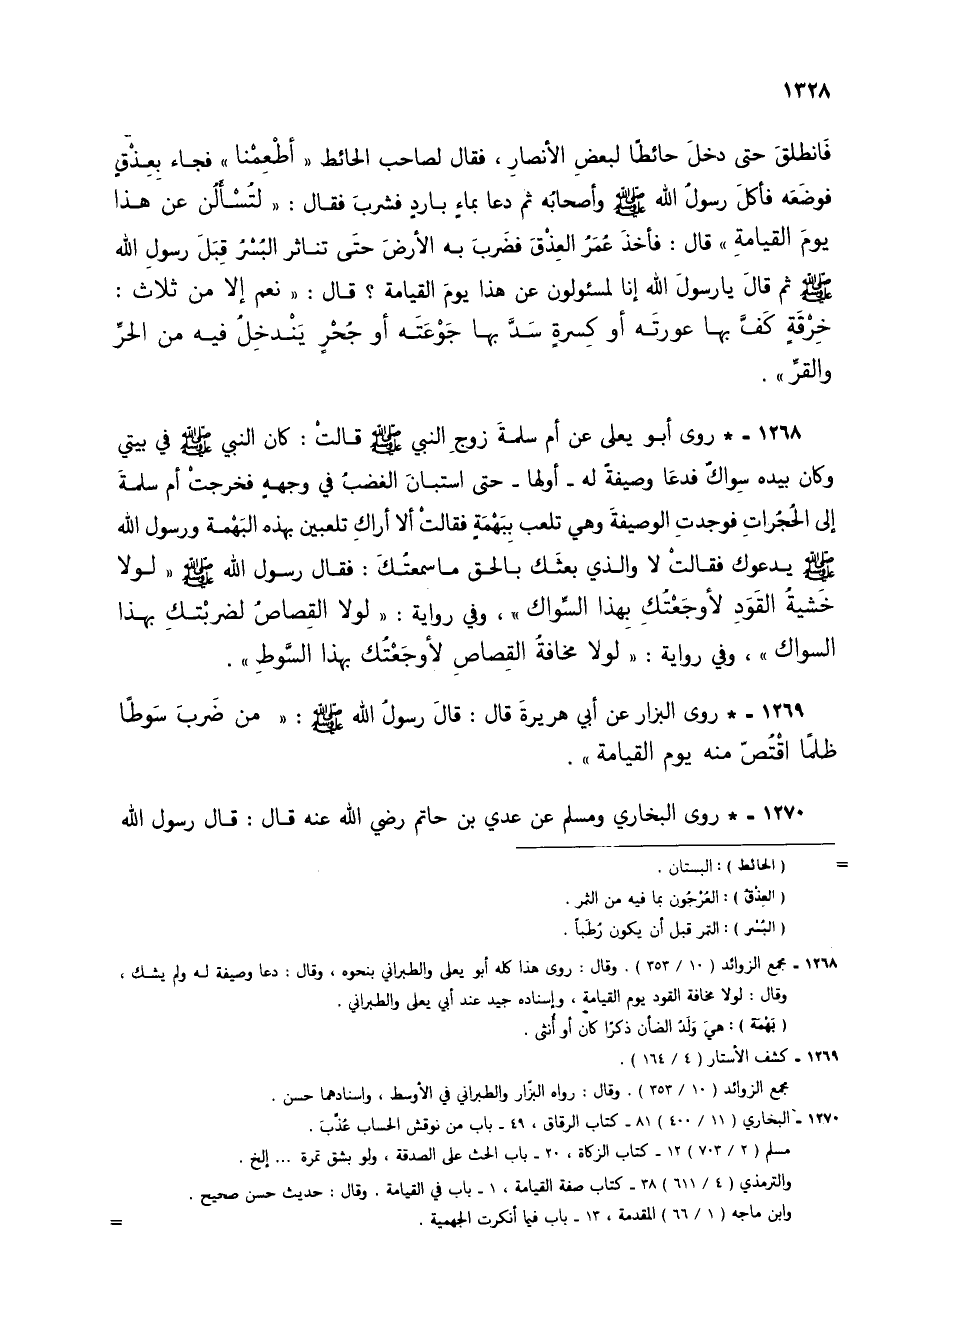 ١٣٢٨
فَانطلقَ حتى دخلَ حائطًا لبعضِ الأنصارِ ، فقال لصاحب الحائط « أَطْعِمْنا » فجاء بِعِذْقٍ
فوضَعَه فأكلَ رسولُ الله ﷺ وأصحابُه ثم دعا بماءٍ باردٍ فشربَ فقال : « لَتُسْأَلُن عن هذا
يومَ القيامةِ » قال : فأخذَ عُمَرُ العِذْقَ فضَربَ به الأرضَ حتَى تناثر البُسْرُ قِبَلَ رسولِ الله
ﷺ ثم قالَ يارسولَ الله إنا لمسئولون عن هذا يومَ القيامة ؟ قال : « نعم إلا من ثلاث :
خِرْقَةٍ كَفَّ بها عورتَه أو كِسرةٍ سَدَّ بها جَوْعَتَه أو جُحْرٍ يَنْدخلُ فيه من الحرِّ
والقرِّ » .
١٢٦٨ - * روى أبو يعلى عن أم سلمةَ زوجِ النبي ﷺ قالتْ : كان النبي ﷺ في بيتي
وكان بيده سِواكٌ فدعَا وصيفةً له - أولها - حتى استبانَ الغضبُ في وجههِ فخرجتْ أم سلمةَ
إلى الحُجُراتِ فوجدتِ الوصيفةَ وهي تلعب بِبَهْمَةٍ فقالتْ ألا أراكِ تلعبين بهذه البَهْمة ورسول الله
ﷺ يدعوك فقالتْ لا والذي بعثَك بالحقِ ماسمعتُكَ : فقال رسول الله ﷺ « لولا
خَشْيةُ القَوَدِ لأوجَعْتُكِ بهذا السِّواك » ، وفي رواية : « لولا القصاصُ لضربْتكِ بهذا
السواك » ، وفي رواية : « لولا مخافةُ القصاصِ لأوجَعْتُك بهذا السَّوط » .
١٢٦٩ - * روى البزار عن أبي هريرةَ قال : قالَ رسولُ الله ﷺ : « من ضَربَ سَوطًا
ظلمًا اقْتُصّ منه يوم القيامة » .
١٢٧٠ - * روى البخاري ومسلم عن عدي بن حاتم رضي الله عنه قال : قال رسول الله
= ( الحائط ) : البستان .
( العِذْق ) : العُرْجُون بما فيه من الثمر .
( البُسْر ) : التمر قبل أن يكون رُطَباً .
١٢٦٨ - مجمع الزوائد ( ١٠ / ٣٥٣ ) . وقال : روى هذا كله أبو يعلى والطبراني بنحوه ، وقال : دعا وصيفة له ولم يشك ،
وقال : لولا مخافة القود يوم القيامة ، وإسناده جيد عند أبي يعلى والطبراني .
( بَهْمَة ) : هيَ وَلَدُ الضأن ذكرًا كان أو أُنثى .
١٢٦٩ - كشف الأستار ( ٤ / ١٦٤ ) .
مجمع الزوائد ( ١٠ / ٣٥٣ ) . وقال : رواه البزّار والطبراني في الأوسط ، واسنادهما حسن .
١٢٧٠ - البخاري ( ١١ / ٤٠٠ ) ٨١ - كتاب الرقاق ، ٤٩ - باب من نوقش الحساب عُذِّبَ .
مسلم ( ٢ / ٧٠٣ ) ١٢ - كتاب الزكاة ، ٢٠ - باب الحث على الصدقة ، ولو بشق تمرة ... إلخ .
والترمذي ( ٤ / ٦١١ ) ٣٨ - كتاب صفة القيامة ، ١ - باب في القيامة . وقال : حديث حسن صحيح .
وابن ماجه ( ١ / ٦٦ ) المقدمة ، ١٣ - باب فيما أنكرت الجهمية . =